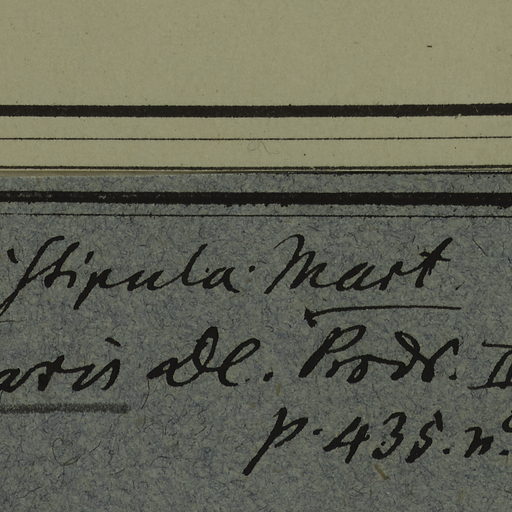 stipula Mart
aris DC. Prodr. II
p. 435. n.